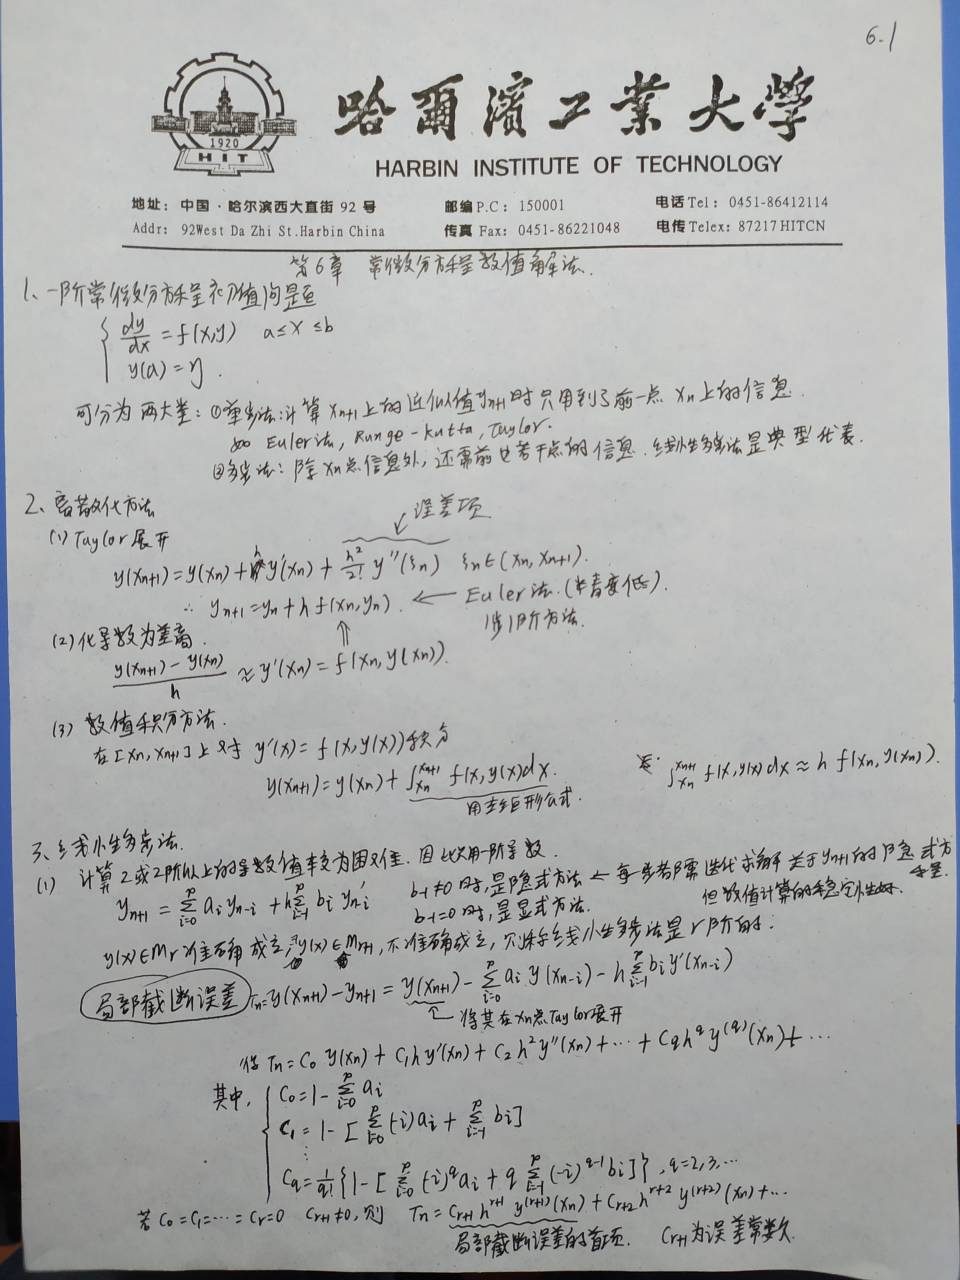 6.1
哈爾濱工業大學
1920
HIT
HARBIN INSTITUTE OF TECHNOLOGY
地址：中国·哈尔滨西大直街 92 号 邮编 P.C：150001 电话 Tel：0451-86412114
Addr：92West Da Zhi St.Harbin China 传真 Fax：0451-86221048 电传 Telex：87217 HITCN
第6章 常微分方程数值解法.
1、一阶常微分方程初值问题
{ dy/dx = f(x,y) a≤x≤b
y(a)=η.
可分为两大类：①单步法：计算 xn+1 上的近似值 yn+1 时只用到了前一点 xn 上的信息.
如 Euler法, Runge-Kutta, Taylor.
②多步法：除 xn 点信息外，还需前也若干点的信息. 线性多步法是典型代表.
2、离散化方法
← 误差项
(1) Taylor展开
y(xn+1)=y(xn)+hy'(xn)+ h²/2! y''(ξn) ξn∈(xn, xn+1).
∴ yn+1=yn+h f(xn,yn). ← Euler法.(精度低).
1阶方法.
(2) 化导数为差商.
(y(xn+1)-y(xn))/h ≈ y'(xn)=f(xn,y(xn)).
(3) 数值积分方法.
在[xn, xn+1]上对于 y'(x)=f(x,y(x))积分
y(xn+1)=y(xn)+∫_{xn}^{xn+1} f(x,y(x)dx.
用左矩形公式.
∫_{xn}^{xn+1} f(x,y(x)dx≈h f(xn,y(xn)).
3、线性多步法.
(1) 计算2或2阶以上的导数值较为困难. 因此只用一阶导数.
yn+1 = Σ_{i=0}^{p} ai yn-i + hΣ_{i=-1}^{p} bi y'n-i
b-1≠0时,是隐式方法 ← 每步都需迭代求解关于yn+1的隐式方程
但数值计算的稳定性好.
b-1=0时,是显式方法.
y(x)∈Mr 准确成立,y(x)∈Mr+1,不准确成立,则称线性多步法是r阶的：
局部截断误差 Tn=y(xn+1)-yn+1 = y(xn+1)-Σ_{i=0}^{p} ai y(xn-i)-hΣ_{i=-1}^{p} bi y'(xn-i)
将其在xn点Taylor展开
得 Tn=C0 y(xn)+C1hy'(xn)+C2h²y''(xn)+…+Cqh^q y^(q)(xn)+…
其中, { C0=1-Σ_{i=0}^{p} ai
C1=1-[Σ_{i=0}^{p}(-i)ai+Σ_{i=-1}^{p} bi]
⋮
Cq=1/q!{1-[Σ_{i=0}^{p}(-i)^q ai+qΣ_{i=-1}^{p}(-i)^{q-1}bi]}, q=2,3,…
若 C0=C1=…=Cr=0 Cr+1≠0,则 Tn=Cr+1h^{r+1}y^(r+1)(xn)+Cr+2h^{r+2}y^(r+2)(xn)+…
局部截断误差的首项. Cr+1为误差常数.